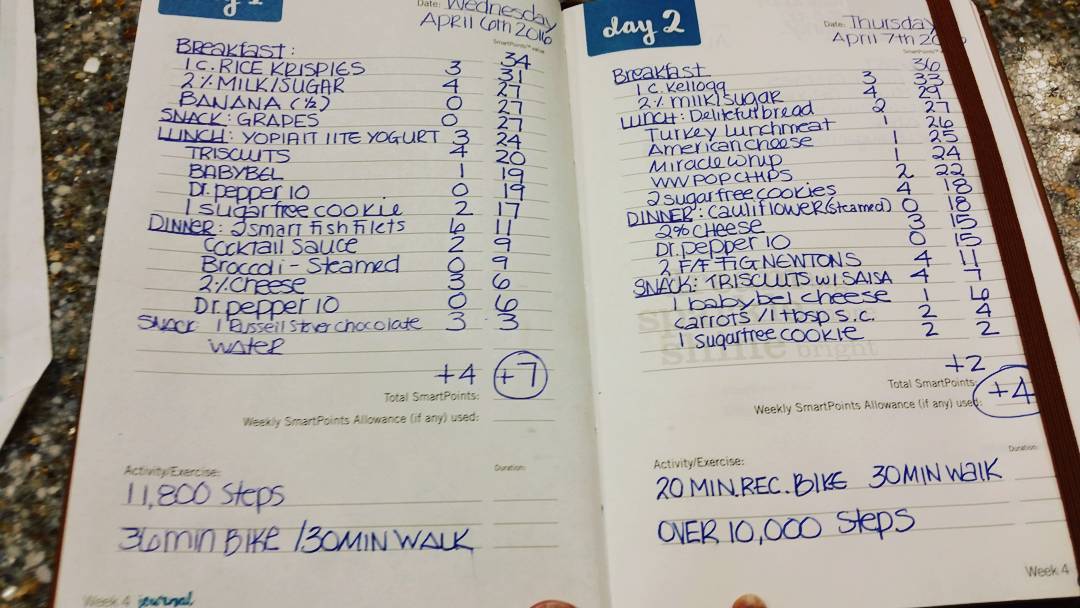 Date: Wednesday
April 6th 2016
SmartPoints value
34
Breakfast:
1 C. RICE KRISPIES 3 31
2% MILK/SUGAR 4 27
BANANA (½) 0 27
SNACK: GRAPES 0 27
LUNCH: YOPIAIT lITE YOGURT 3 24
TRISCUITS 4 20
BABYBEL 1 19
Dr. pepper 10 0 19
1 sugar free cookie 2 17
DINNER: 2 smart fish filets 6 11
Cocktail Sauce 2 9
Broccoli - Steamed 0 9
2% Cheese 3 6
Dr. pepper 10 0 6
SNACK: 1 Russell Stover chocolate 3 3
WATER
+4 +7
Total SmartPoints:
Weekly SmartPoints Allowance (if any) used:
Activity/Exercise: Duration:
11,800 Steps
36 min BIKE /30 MIN WALK
Week 4 journal
day 2
Date: Thursday
April 7th
36
Breakfast
1 C. Kellogg 3 33
2% milk/sugar 4 29
LUNCH: Deliteful bread 2 27
Turkey Lunchmeat 1 26
American cheese 1 25
Miracle whip 1 24
WW POPCHIPS 2 22
2 sugar free cookies 4 18
DINNER: Cauliflower (steamed) 0 18
2% CHEESE 3 15
Dr. pepper 10 0 15
2 F/F FIG NEWTONS 4 11
SNACK: TRISCUITS W/ SAlSA 4 7
1 babybel cheese 1 6
carrots / 1 tbsp s.c. 2 4
1 sugarfree cookie 2 2
+2
Total SmartPoints: +4
Weekly SmartPoints Allowance (if any) used:
Activity/Exercise: Duration:
20 MIN. REC. BIKE 30 MIN WAlK
OVER 10,000 Steps
Week 4